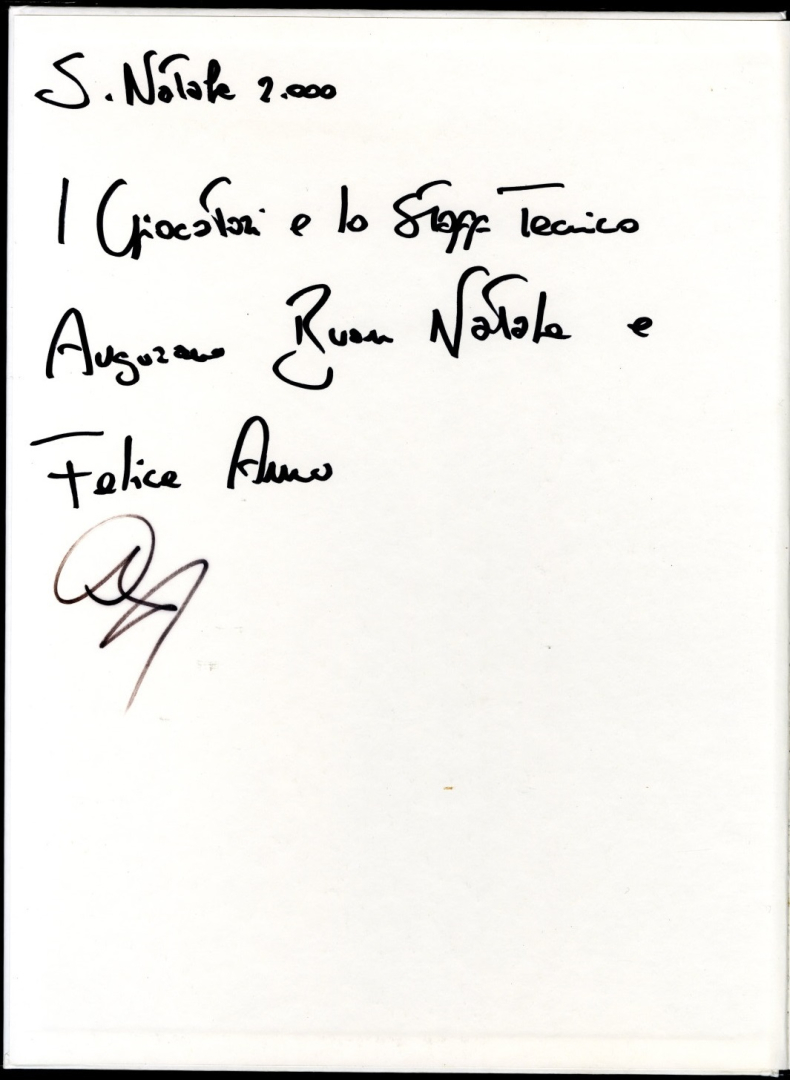 S. Natale 2.000
I Giocatori e lo Staff Tecnico
Augurano Buon Natale e
Felice Anno